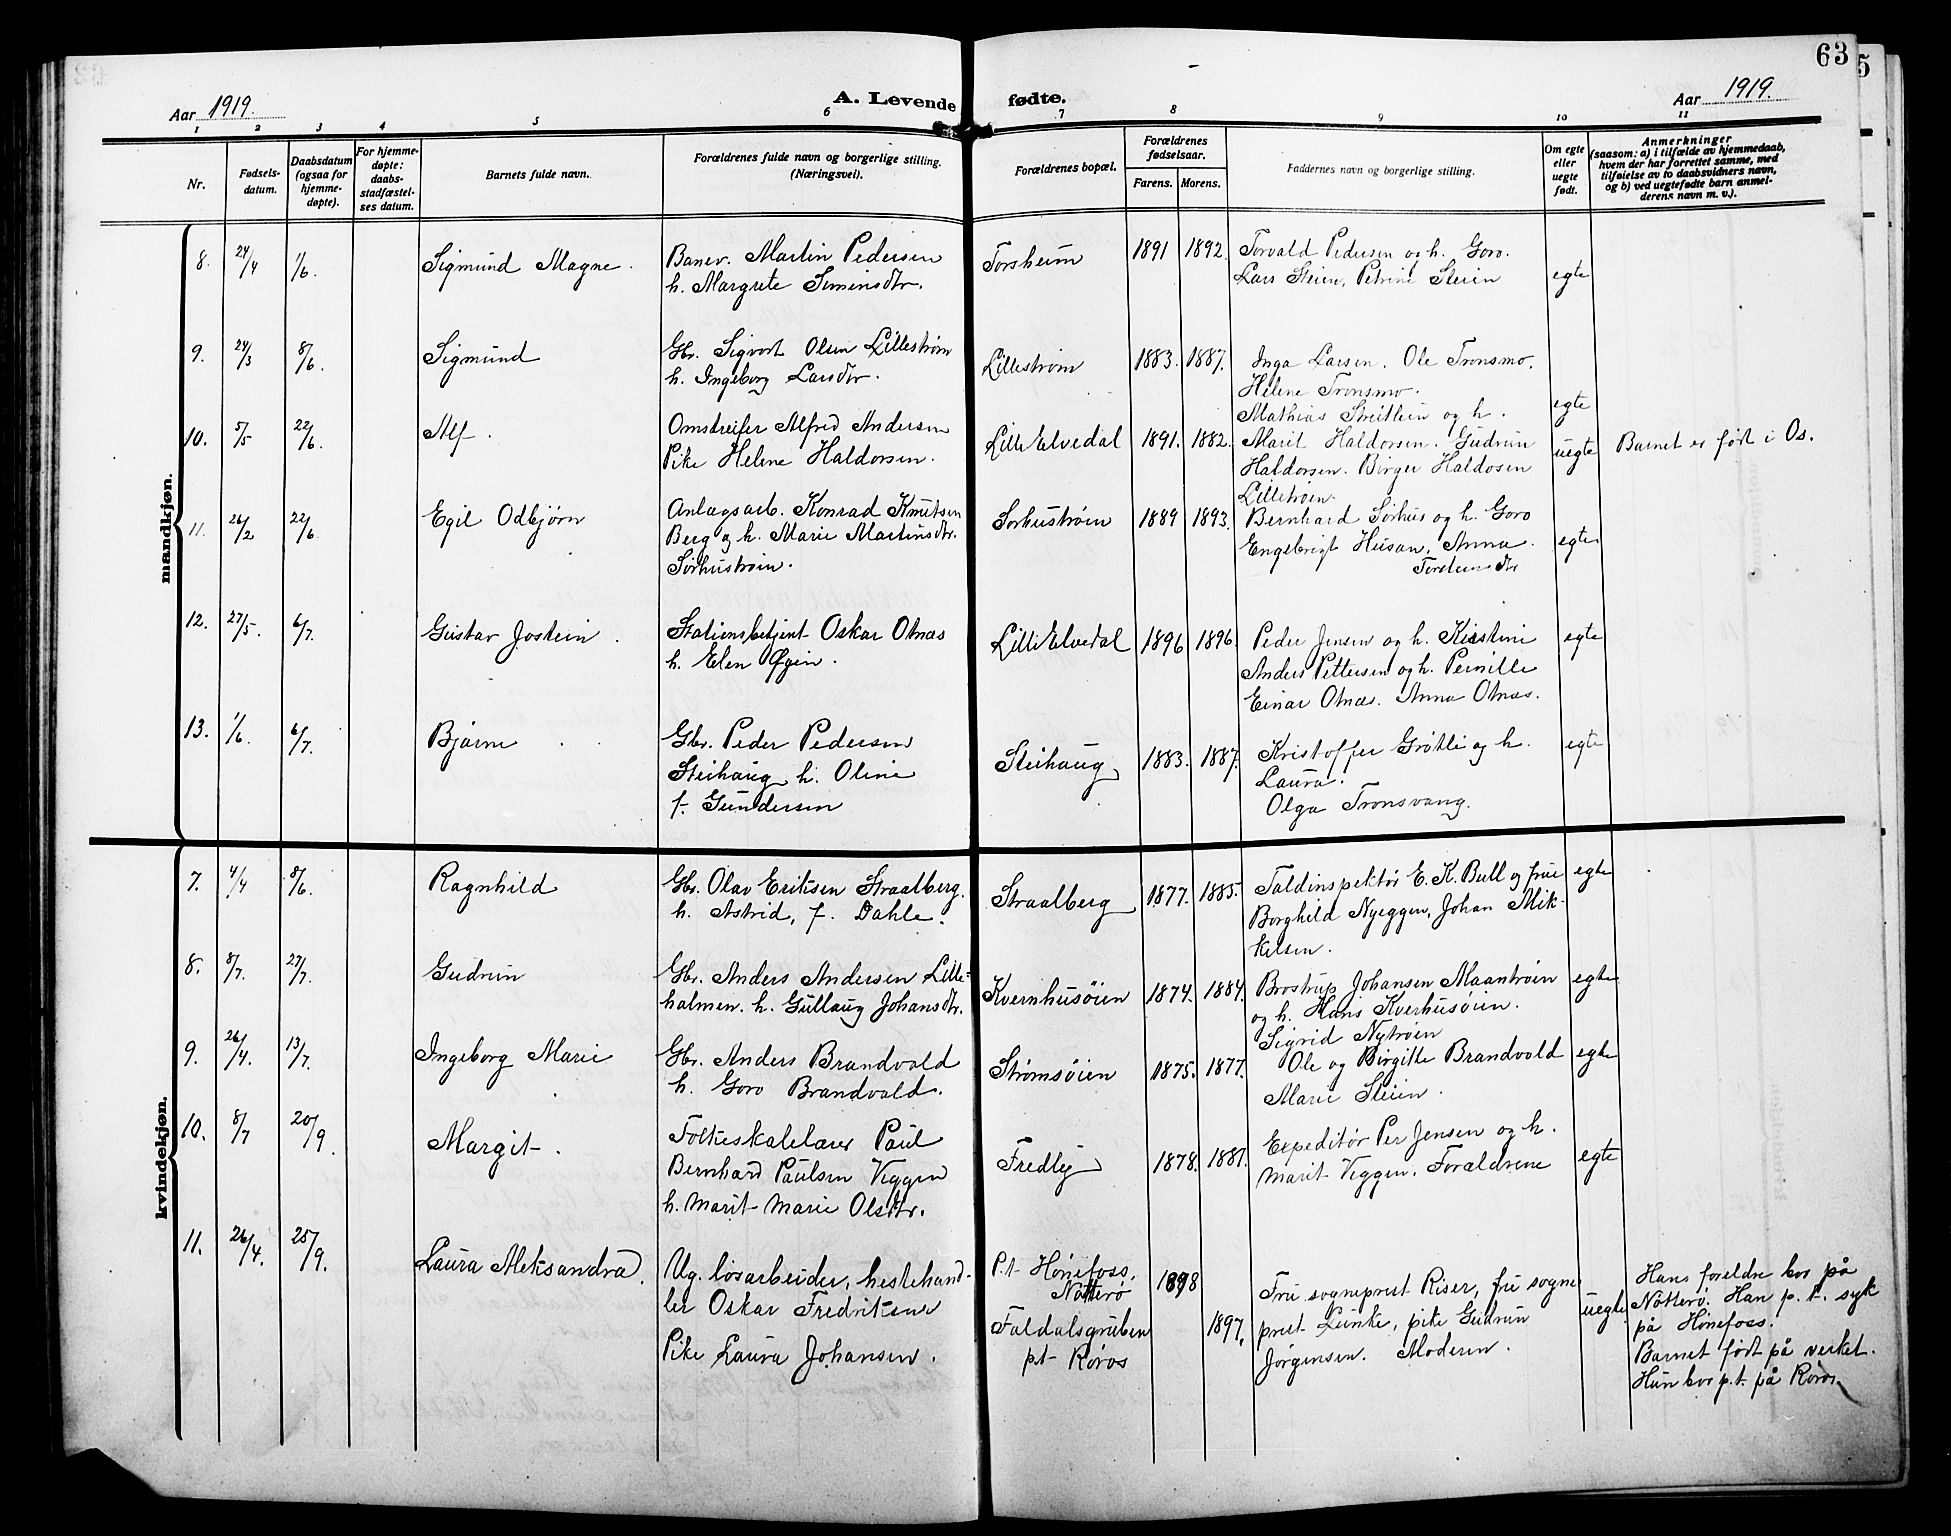 63
Aar 1919.
A. Levende fødte.
Aar 1919.
1 2 3 4 5 6 7 8 9 10 11
Nr.
Fødsels-
datum.
Daabsdatum
(ogsaa for
hjemme-
døpte).
For hjemme-
døpte:
daabs-
stadfæstel-
ses datum.
Barnets fulde navn.
Forældrenes fulde navn og borgerlige stilling.
(Næringsvei).
Forældrenes bopæl.
Forældrenes
fødselsaar.
Farens. Morens.
Faddernes navn og borgerlige stilling.
Om egte
eller
uegte
født.
Anmerkninger
(saasom: a) i tilfælde av hjemmedaab,
hvem der har forrettet samme, med
tilføielse av to daabsvidners navn,
og b) ved uegtefødte barn anmel-
derens navn m. v.).
mandkjøn.
8. 24/4 1/6. Sigmund Magne.
Banev. Martin Pedersen
h. Margrete Simensdtr.
Torsheim 1891 1892.
Torvald Pedersen og h. Goro.
Lars Steien, Petrine Steien
egte
9. 24/3 8/6. Sigmund
Gbr. Sigvart Olsen Lillestrøm
h. Ingeborg Larsdtr.
Lillestrøm 1883. 1887.
Inga Larsen. Ole Tronsmo.
Helene Tronsmo.
egte
10. 5/5 22/6. Alf.
Omstreifer Alfred Andersen
Pike Helene Haldorsen.
Lille Elvedal 1891. 1882.
Mathias Streitlien og h.
Marit Haldorsen. Gudrun
Haldorsen. Birger Haldosen
Lillestrøen.
uegte
Barnet er født i Os.
11. 26/2 22/6. Egil Odbjørn
Anlægsarb. Konrad Knutsen
Berg og h. Marie Martinsdtr.
Sørhustrøin.
Sørhustrøen 1889 1893.
Bernhard Sørhus og h. Goro
Engebrigt Husan, Anna
Torsteinsdtr
egte
12. 27/5. 6/7. Gustav Jostein.
Stationsbetjent Oskar Otnæs
h. Elen Øgein.
Lille Elvedal 1896 1896.
Peder Jensen og h. Kirstine
Anders Pettersen og h. Pernille
Einar Otnæs. Anna Otnæs.
egte
13. 1/6. 6/7. Bjarne
Gbr. Peder Pedersen
Steihaug h. Oline
f. Gundersen
Steihaug 1883. 1887.
Kristoffer Grøtli og h.
Laura.
Olga Tronsvang.
egte
kvindekjøn.
7. 4/4 8/6. Ragnhild
Gbr. Olav Eriksen Straalberg.
h. Astrid, f. Dahle.
Straalberg 1877. 1885.
Faldinspektør E. K. Bull og frue
Borghild Nyeggen, Johan Mik-
kelsen.
egte
8. 8/7. 27/7. Gudrun
Gbr. Anders Andersen Lille-
halmen. h. Gullaug Johansdtr.
Kvernhusøien 1874. 1884.
Brostrup Johansen Maantrøen
og h. Hans Kverhusøien.
Sigrid Nytrøen
egte
9. 26/4. 13/7. Ingeborg Marie
Gbr. Anders Brandvold
h. Goro Brandvold.
Strømsøien 1875. 1877.
Ole og Birgitte Brandvold
Marie Steien.
egte
10. 8/7 20/9. Margit.
Folkeskolelærer Paul
Bernhard Paulsen Viggen
h. Marit Marie Olsdtr.
Fredly 1878. 1881.
Expeditør Per Jensen og h.
Marit Viggen. Forældrene
egte
11. 26/4. 25/9. Laura Aleksandra.
Ug. løsarbeider, hestehand-
ler Oskar Fredriksen
Pike Laura Johansen.
P.t. Hønefoss,
Nøtterø
Faldalsgruben
p.t. Røros
1898
1897.
Fru sogneprest Riser, fru sogne
prest Lunke, pike Gudrun
Jørgensen. Moderen.
uegte
Hans foreldre bor på
Nøtterø. Han p. t. syk
på Hønefoss.
Barnet født på verket.
Hun bor p.t. på Røros.